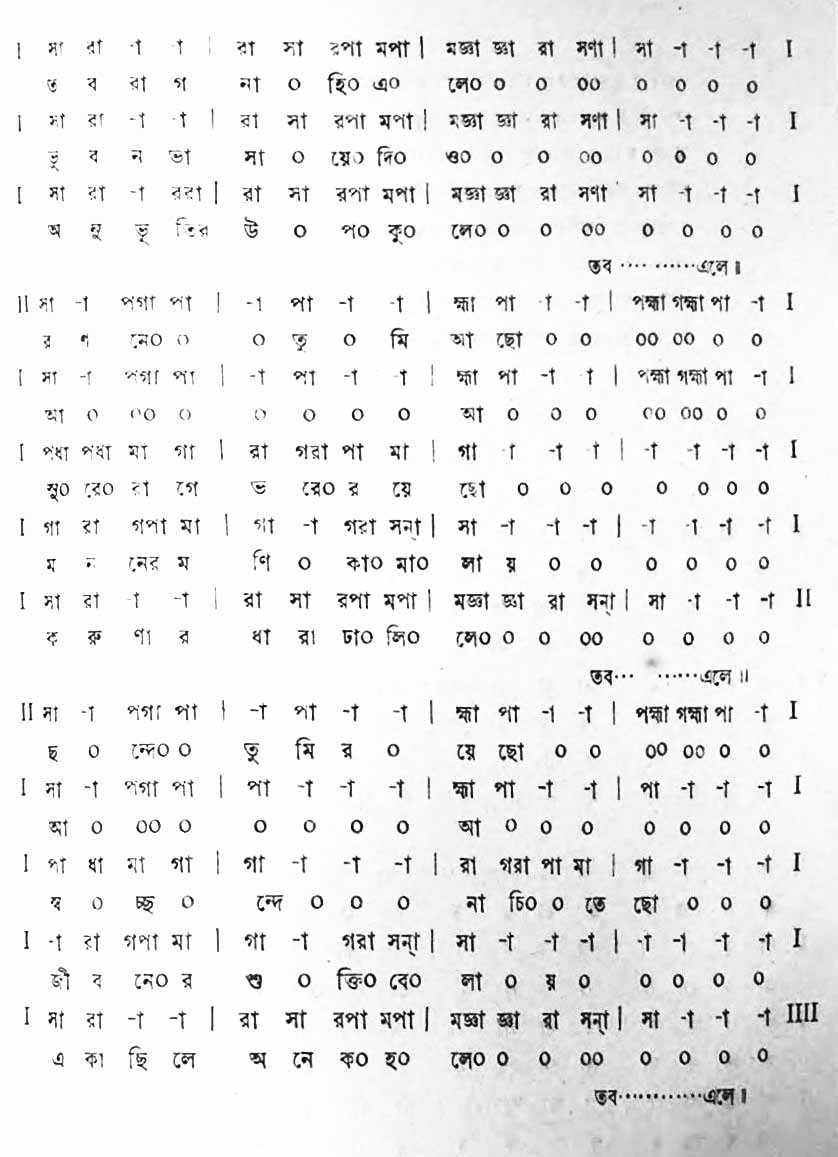 I সা রা -া -া | রা সা রপা মপা | মজ্ঞা জ্ঞা রা সণা | সা -া -া -া I
ত ব রা গ না ০ হি০ এ০ লে০ ০ ০ ০০ ০ ০ ০ ০
I সা রা -া -া | রা সা রপা মপা | মজ্ঞা জ্ঞা রা সণা | সা -া -া -া I
ভূ ব ন ভা সা ০ য়ে০ দি০ ও০ ০ ০ ০০ ০ ০ ০ ০
I সা রা -া ররা | রা সা রপা মপা | মজ্ঞা জ্ঞা রা সণা সা -া -া -া I
অ নু ভূ তির উ ০ প০ কু০ লে০ ০ ০ ০০ ০ ০ ০ ০
তব ···· ·······এলে॥
II সা -া পগা পা | -া পা -া -া | হ্মা পা -া -া | পহ্মা গহ্মা পা -া I
র ণ নে০ ০ ০ তু ০ মি আ ছো ০ ০ ০০ ০০ ০ ০
I সা -া পগা পা | -া পা -া -া | হ্মা পা -া -া | পহ্মা গহ্মা পা -া I
আ ০ ০০ ০ ০ ০ ০ ০ আ ০ ০ ০ ০০ ০০ ০ ০
I পধা পধা মা গা | রা গরা পা মা | গা -া -া -া | -া -া -া -া I
সু০ রে০ রা গে ভ রে০ র য়ে ছো ০ ০ ০ ০ ০ ০ ০
I গা রা গপা মা | গা -া গরা সন্া | সা -া -া -া | -া -া -া -া I
ম ন নের ম ণি ০ কা০ মা০ লা য় ০ ০ ০ ০ ০ ০
I সা রা -া -া | রা সা রপা মপা | মজ্ঞা জ্ঞা রা সন্া | সা -া -া -া II
ক রু ণা র ধা রা ঢা০ লি০ লে০ ০ ০ ০০ ০ ০ ০ ০
তব··· ······এলে॥
II সা -া পগা পা | -া পা -া -া | হ্মা পা -া -া | পহ্মা গহ্মা পা -া I
ছ ০ ন্দে০ ০ তু মি র ০ য়ে ছো ০ ০ ০০ ০০ ০ ০
I সা -া পগা পা | পা -া -া -া | হ্মা পা -া -া | পা -া -া -া I
আ ০ ০০ ০ ০ ০ ০ ০ আ ০ ০ ০ ০ ০ ০ ০
I পা ধা মা গা | গা -া -া -া | রা গরা পা মা | গা -া -া -া I
স্ব ০ চ্ছ ০ ন্দে ০ ০ ০ না চি০ ০ তে ছো ০ ০ ০
I -া রা গপা মা | গা -া গরা সন্া | সা -া -া -া | -া -া -া -া I
জী ব নে০ র শু ০ ক্তি০ বে০ লা ০ য় ০ ০ ০ ০ ০
I সা রা -া -া | রা সা রপা মপা | মজ্ঞা জ্ঞা রা সন্া | সা -া -া -া IIII
এ কা ছি লে অ নে ক০ হ০ লে০ ০ ০ ০০ ০ ০ ০ ০
তব·············এলে॥